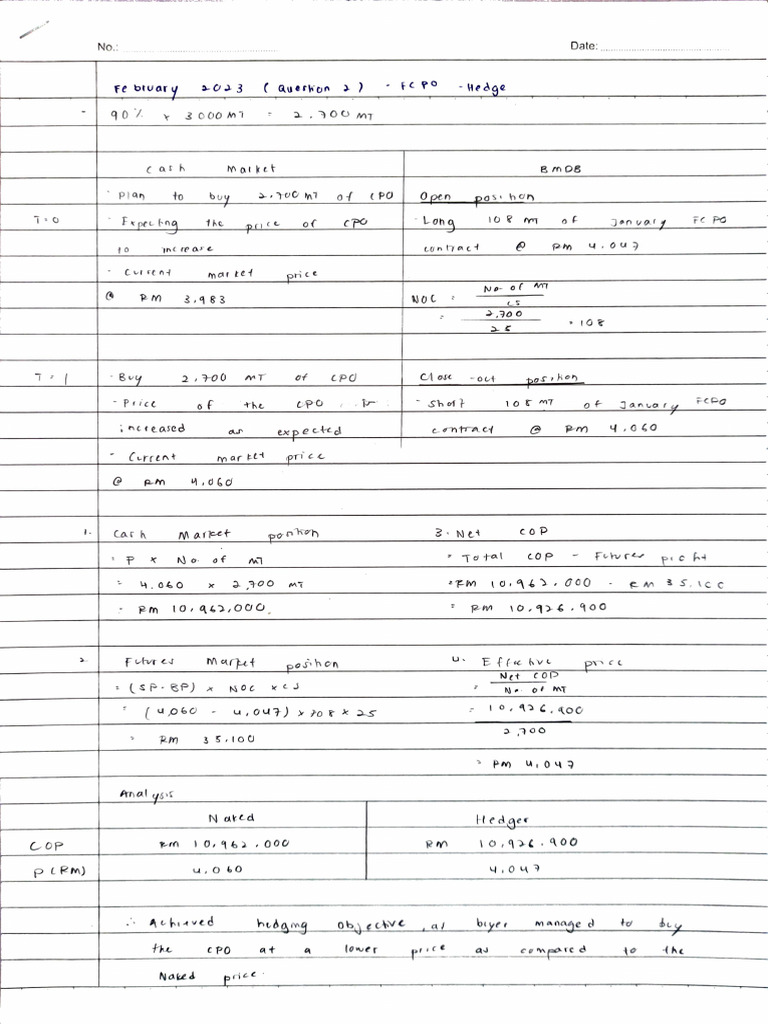 No.:
Date:
February 2023 (Question 2) - FCPO - Hedge
- 90% x 3000MT = 2.700 MT
Cash Market
BMDB
T=0
- Plan to buy 2,700 MT of CPO
- Expecting the price of CPO
to increase
- Current market price
@ RM 3,983
Open position
- Long 108 MT of January FCPO
contract @ RM 4.047
NOC = No. of MT / CS
= 2,700 / 25 = 108
T=1
- Buy 2,700 MT of CPO
- Price of the CPO
increased as expected
- Current market price
@ RM 4,060
Close-out position
- Short 108 MT of January FCPO
contract @ RM 4.060
1. Cash Market position
= P x No. of MT
= 4.060 x 2,700 MT
= RM 10,962,000.
2. Futures Market position
= (SP-BP) x NOC x CS
= (4,060 - 4,047) x 108 x 25
= RM 35.100
3. Net COP
= Total COP - Futures profit
= RM 10,962.000 - RM 35.100
= RM 10,926.900
4. Effective price
= Net COP / No. of MT
= 10,926.900 / 2,700
= RM 4,047
Analysis
Naked
Hedger
COP RM 10,962.000 RM 10,926.900
P(RM) 4.060 4,047
∴ Achieved hedging objective as buyer managed to buy
the CPO at a lower price as compared to the
Naked price.